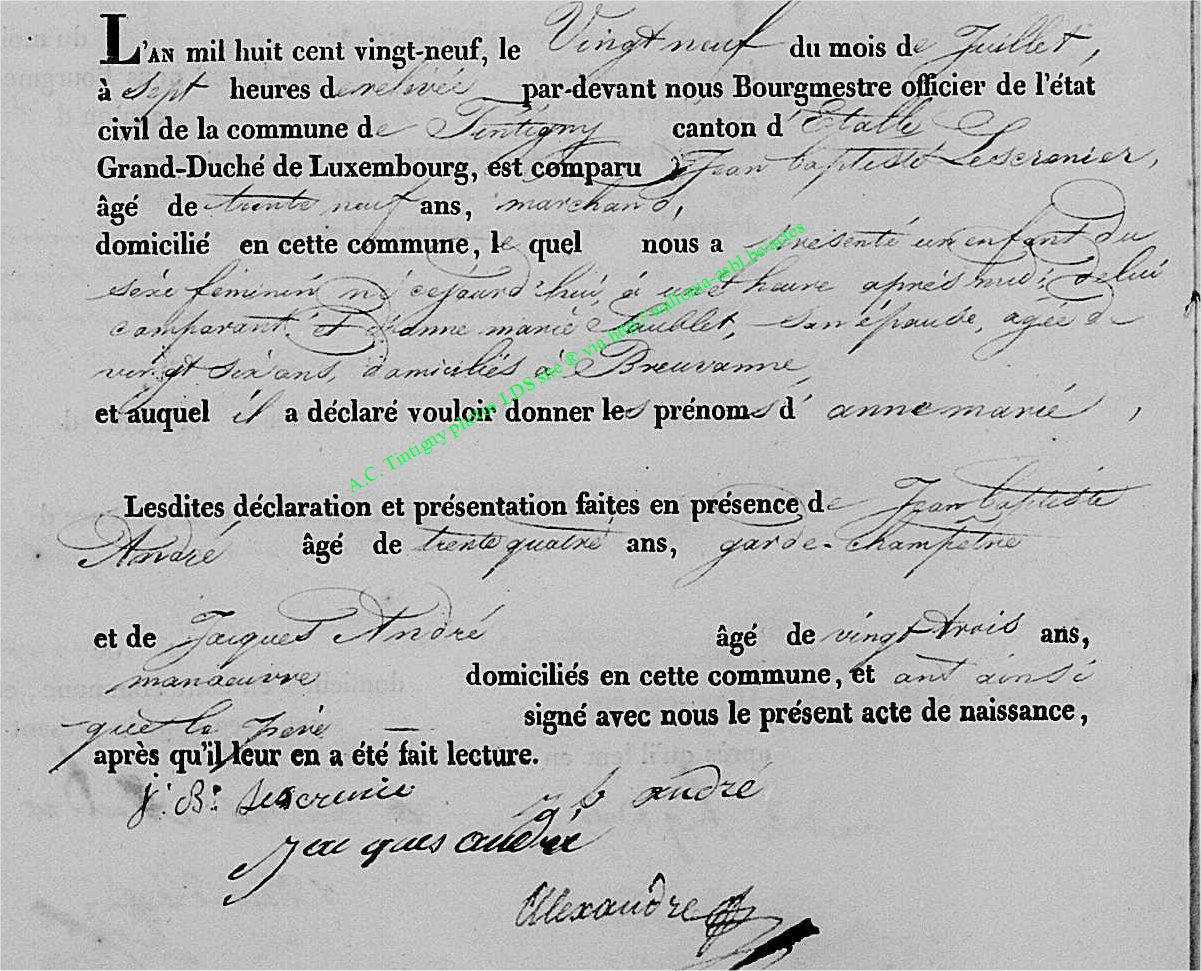 L'AN mil huit cent vingt-neuf, le Vingt neuf du mois de Juillet,
à Sept heures de relevée par-devant nous Bourgmestre officier de l'état
civil de la commune de Tintigny canton d'Etalle
Grand-Duché de Luxembourg, est comparu Jean baptiste Lescrenier,
âgé de trente neuf ans, marchand,
domicilié en cette commune, le quel nous a présenté un enfant du
séxe féminin né cejourd'hui, à heure après midi, de lui
comparant et d'anne marie son épouse, agée de
vingt six ans, domiciliés à Breuvanne,
et auquel il a déclaré vouloir donner les prénoms d'anne marie,
A.C. Tintigny photos LDS site ® via http://wallonia-asbl.be/actes
Lesdites déclaration et présentation faites en présence de Jean baptiste
André âgé de trente quatre ans, garde-champêtre
et de Jacques André âgé de vingt trois ans,
manoeuvre domiciliés en cette commune, et ont ainsi
que le père — signé avec nous le présent acte de naissance,
après qu'il leur en a été fait lecture.
j. B. Lescrenie j b andré
jacques andré
Alexandre